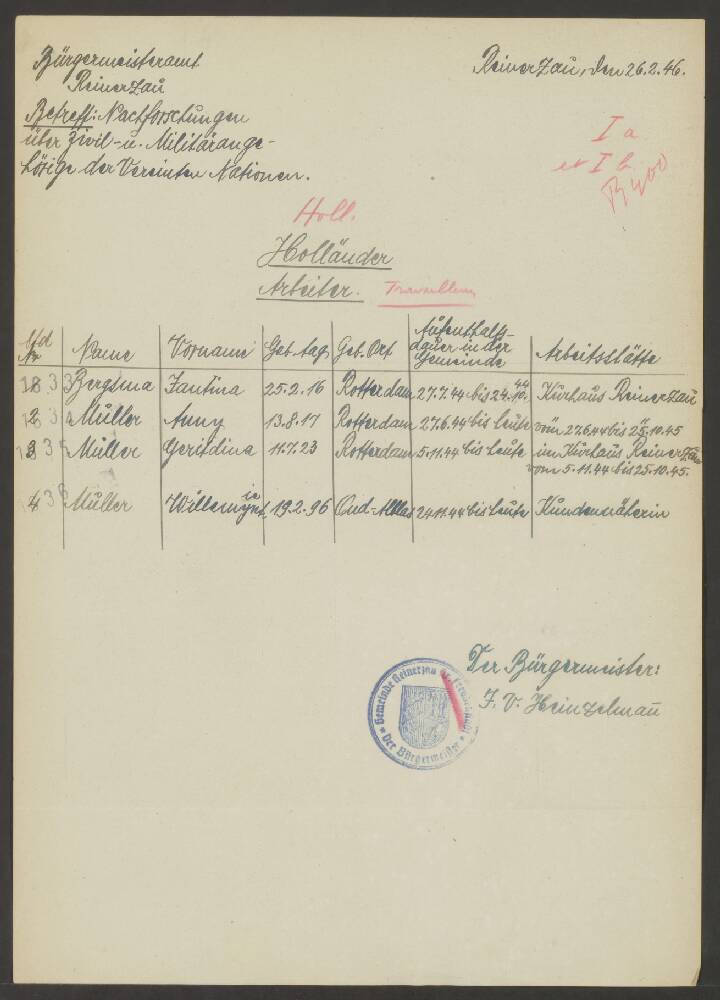 Bürgermeisteramt
Reinerzau
Reinerzau, den 26.2.46.
Betreff: Nachforschungen
über Zivil- u. Militärange-
hörige der Vereinten Nationen.
I a
et I b
Holl.
Holländer
Arbeiter. Travailleurs
Lfd Nr | Name | Vorname | Geb. tag | Geb. Ort | Aufenthalts-dauer in der Gemeinde | Arbeitsstätte
1 | Bergsma | Jantina | 25.2.16 | Rotterdam | 27.7.44 bis 24.10.44 | Kurhaus Reinerzau
2 | Müller | Anny | 13.8.17 | Rotterdam | 27.6.44 bis heute | vom 27.6.44 bis 25.10.45
3 | Müller | Gerridina | 11.7.23 | Rotterdam | 5.11.44 bis heute | im Kurhaus Reinerzau
vom 5.11.44 bis 25.10.45.
4 | Müller | 19.2.96 | 24.11.44 bis heute | Kundennäherin
Der Bürgermeister:
J. V. Heinzelmann
Gemeinde Reinerzau
Der Bürgermeister